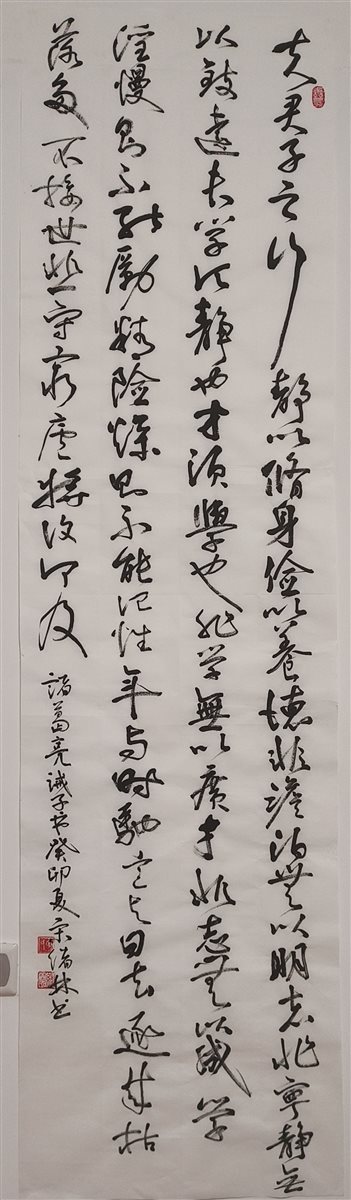 夫君子之行静以脩身俭以养德非澹泊无以明志非宁静无
以致远夫学须静也才须學也非学無以廣才非志无以成学
淫慢则不能励精险躁则不能治性年与时驰意与日去遂成枯
落多不接世悲守穷庐将复何及
諸葛亮诫子书癸卯夏宋绪林书